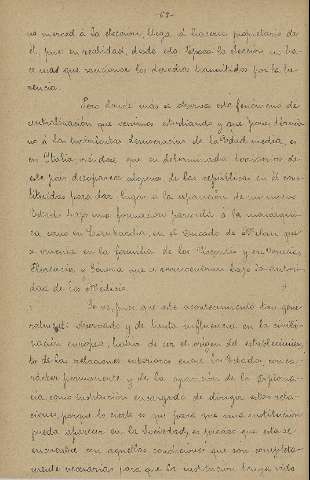 -63-
no merced á la eleccion, llega á hacerse propietario de
él, pues en realidad, desde esta época la eleccion no ha
ce mas que sancionar los derechos trasmitidos por la he
rencia.
Pero donde mas se observa este fenómeno de
centralizacion que venimos estudiando y que pone térmi
no á las democracias de la Edad media, es
en Italia donde, que en determinados territorios de
este pais desaparecen algunas de las repúblicas en él cons
tituidas para dar lugar á la aparicion de un nuevo
Estado bajo una formacion parecida á la monarqui
ca como en Lombardia, en el Ducado de Milan que
se vincula en la familia de los Viscontis y en Venecia,
Florencia y Genova que se reconcentran bajo la autori
dad de la Nobleza.
Se ve, pues que este acontecimiento tan gene
ralmente observado y de tanta influencia en la civili
zacion europea, habia de ser el origen del establecimien
to de las relaciones exteriores entre los Estados con ca
rácter permanente y de la aparicion de la Diploma
cia como institucion encargada de dirigir estas rela
ciones, porque lo cierto es que para que una institucion
pueda aparecer en la Sociedad, es preciso que esta se
encuentre con aquellas condiciones que son completa
mente necesarias para que la institucion tenga vida